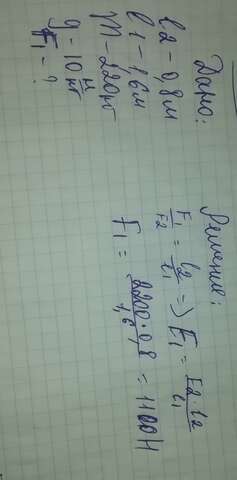 Дано:
l2 - 0,8м
l1 - 1,6м
m - 220кг
g - 10 н/кг
F1 - ?
Решение:
F1/F2 = l2/l1 => F1 = F2·l2/l1
F1 = 2200·0,8/1,6 = 1100Н